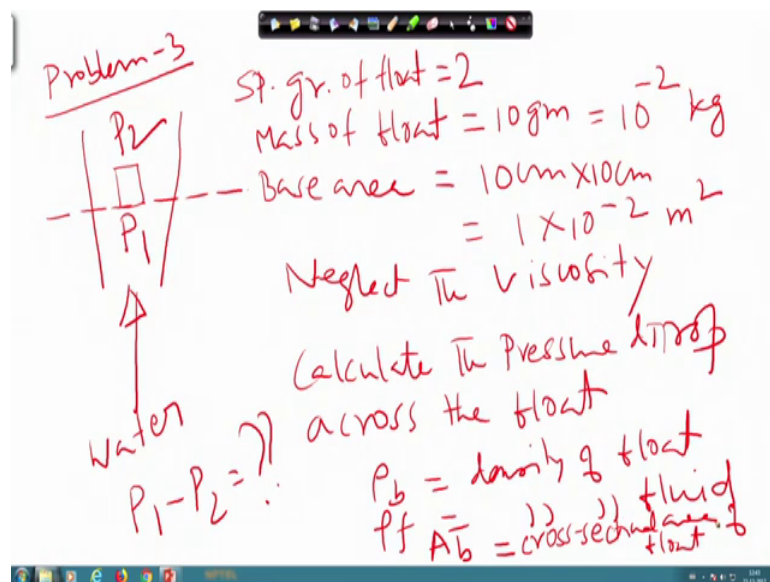 Problem-3
Sp. gr. of float = 2
Mass of float = 10 gm = 10⁻² kg
Base area = 10cm × 10cm
= 1 × 10⁻² m²
Neglect The Viscosity
Calculate The Pressure drop
across the float
P₂
P₁
water
P₁ - P₂ = ??
ρb = density of float
ρf = ,, ,, fluid
Ab = cross-sectional area of
float
NPTEL